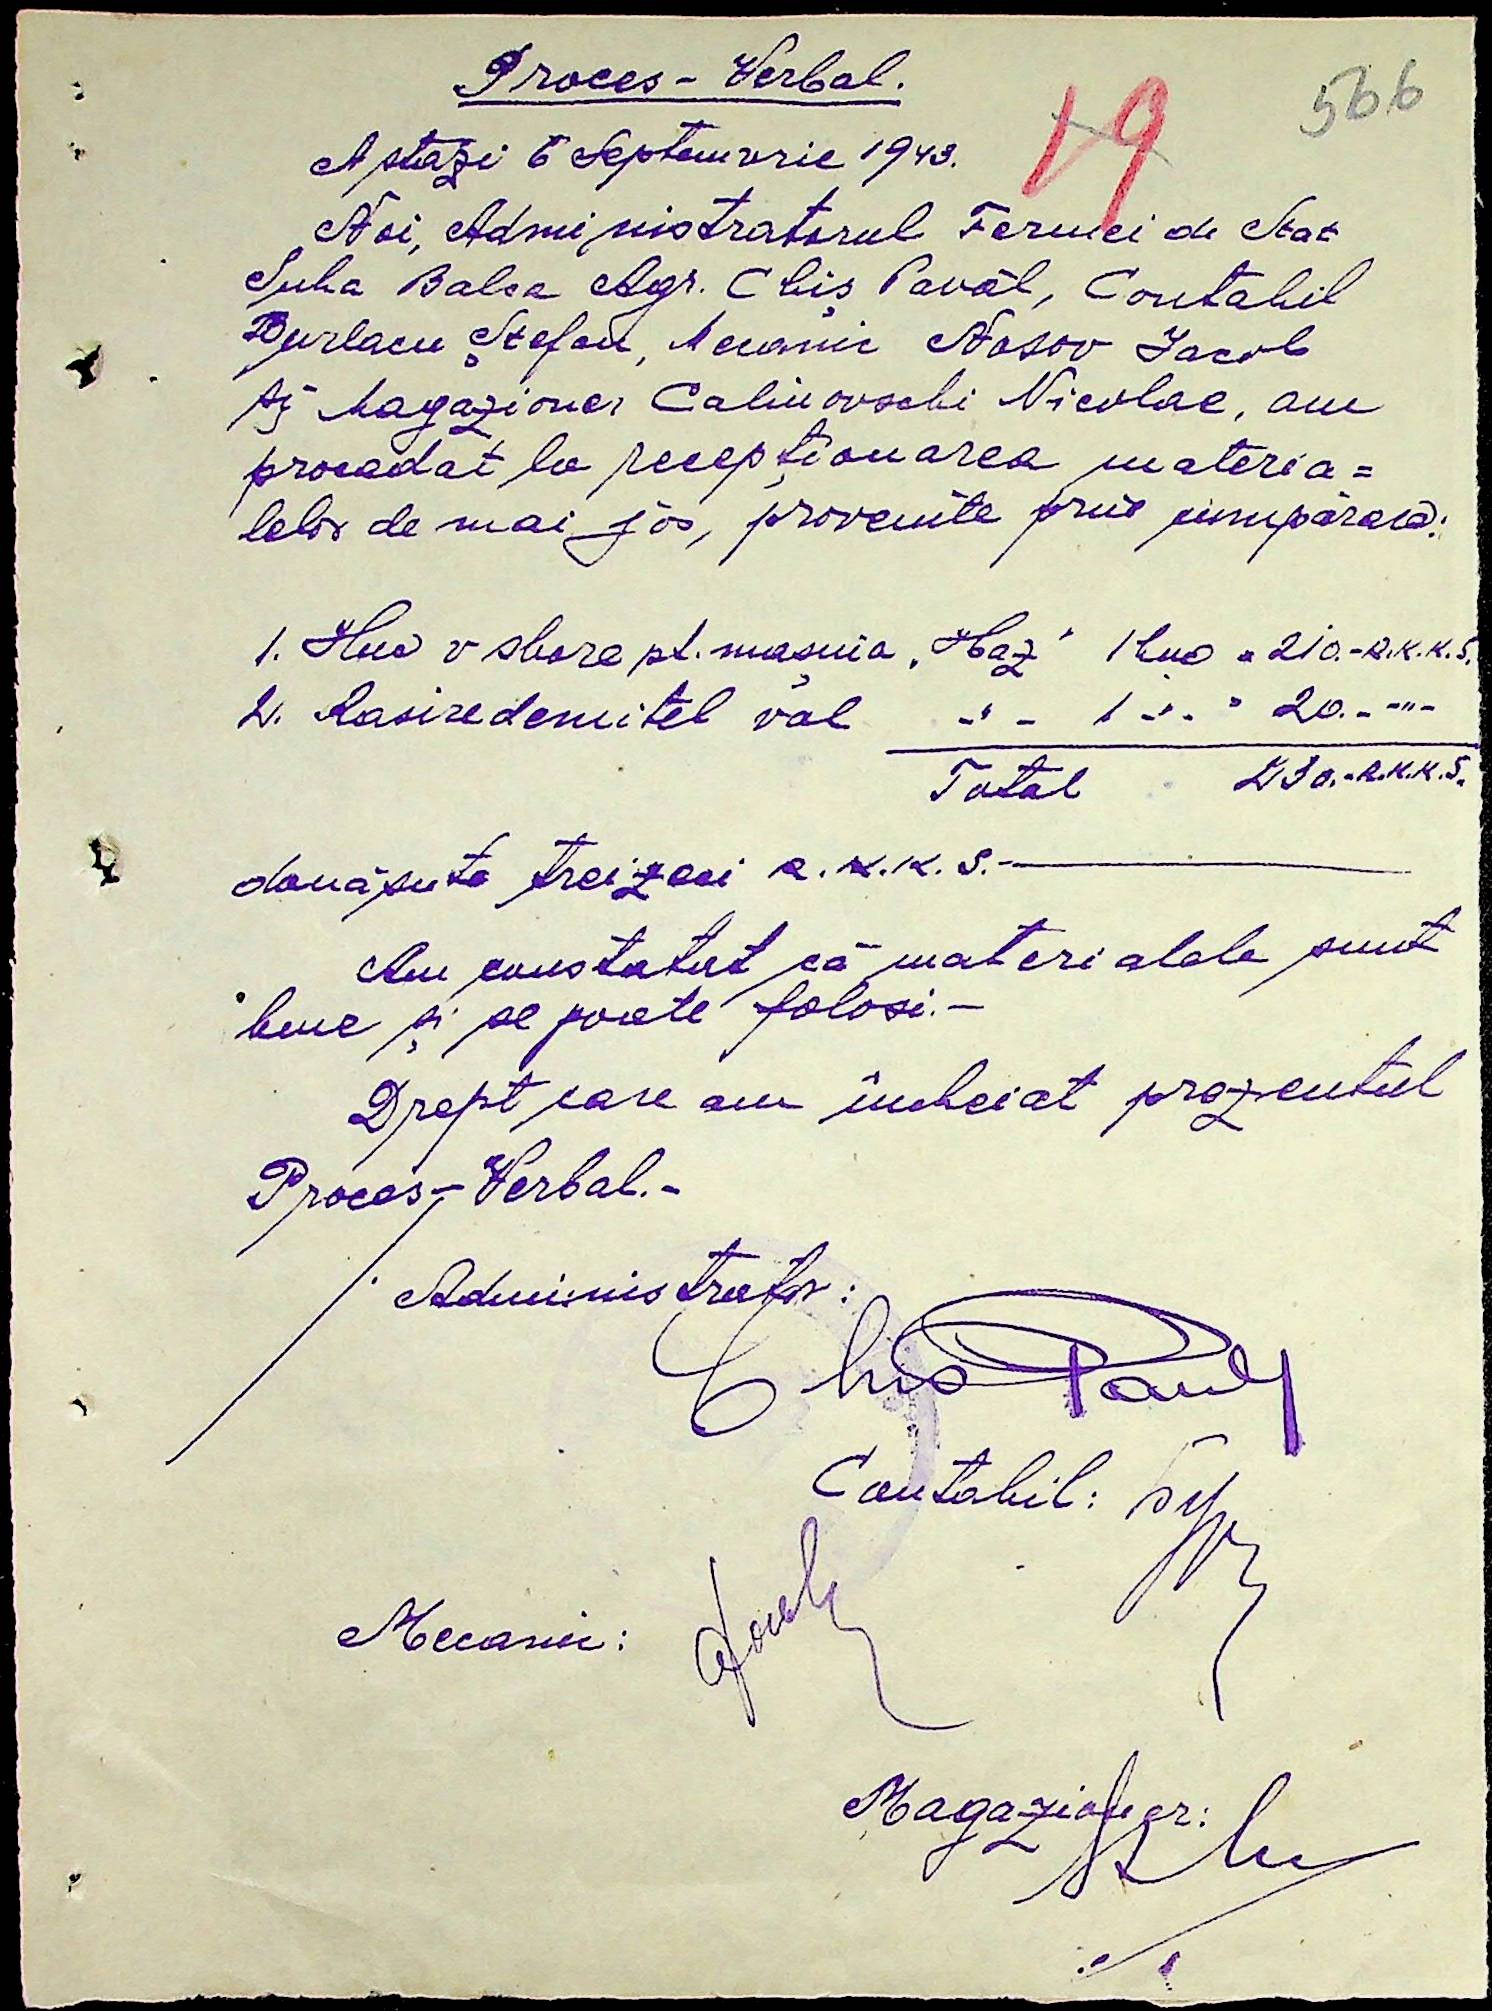 Proces-Verbal.
19
566
Astazi 6 Septemvrie 1943.
Noi, Administratorul Fermei de Stat
Suha Balca Agr. Chiș Pavăl, Contabil
Burlacu Ștefan, Mecanic Nosov Iacob
și Magazioner Calinovschi Nicolae, am
procedat la recepționarea materia=
lelor de mai jos, provenite prin cumpărare:
1. v sbore pt. mașina 1 buc 210.- R.K.K.S.
2. Rasiredemitel val -"- 1 -"- " 20.- -"-
Total 230.- R.K.K.S.
douăsute treizeci R.K.K.S.-
Am constatat că materialele sunt
bune și se poate folosi.-
Drept care am încheiat prezentul
Proces-Verbal.-
Administrator:
Chiș Paul
Contabil:
Mecanic:
Magazioner: